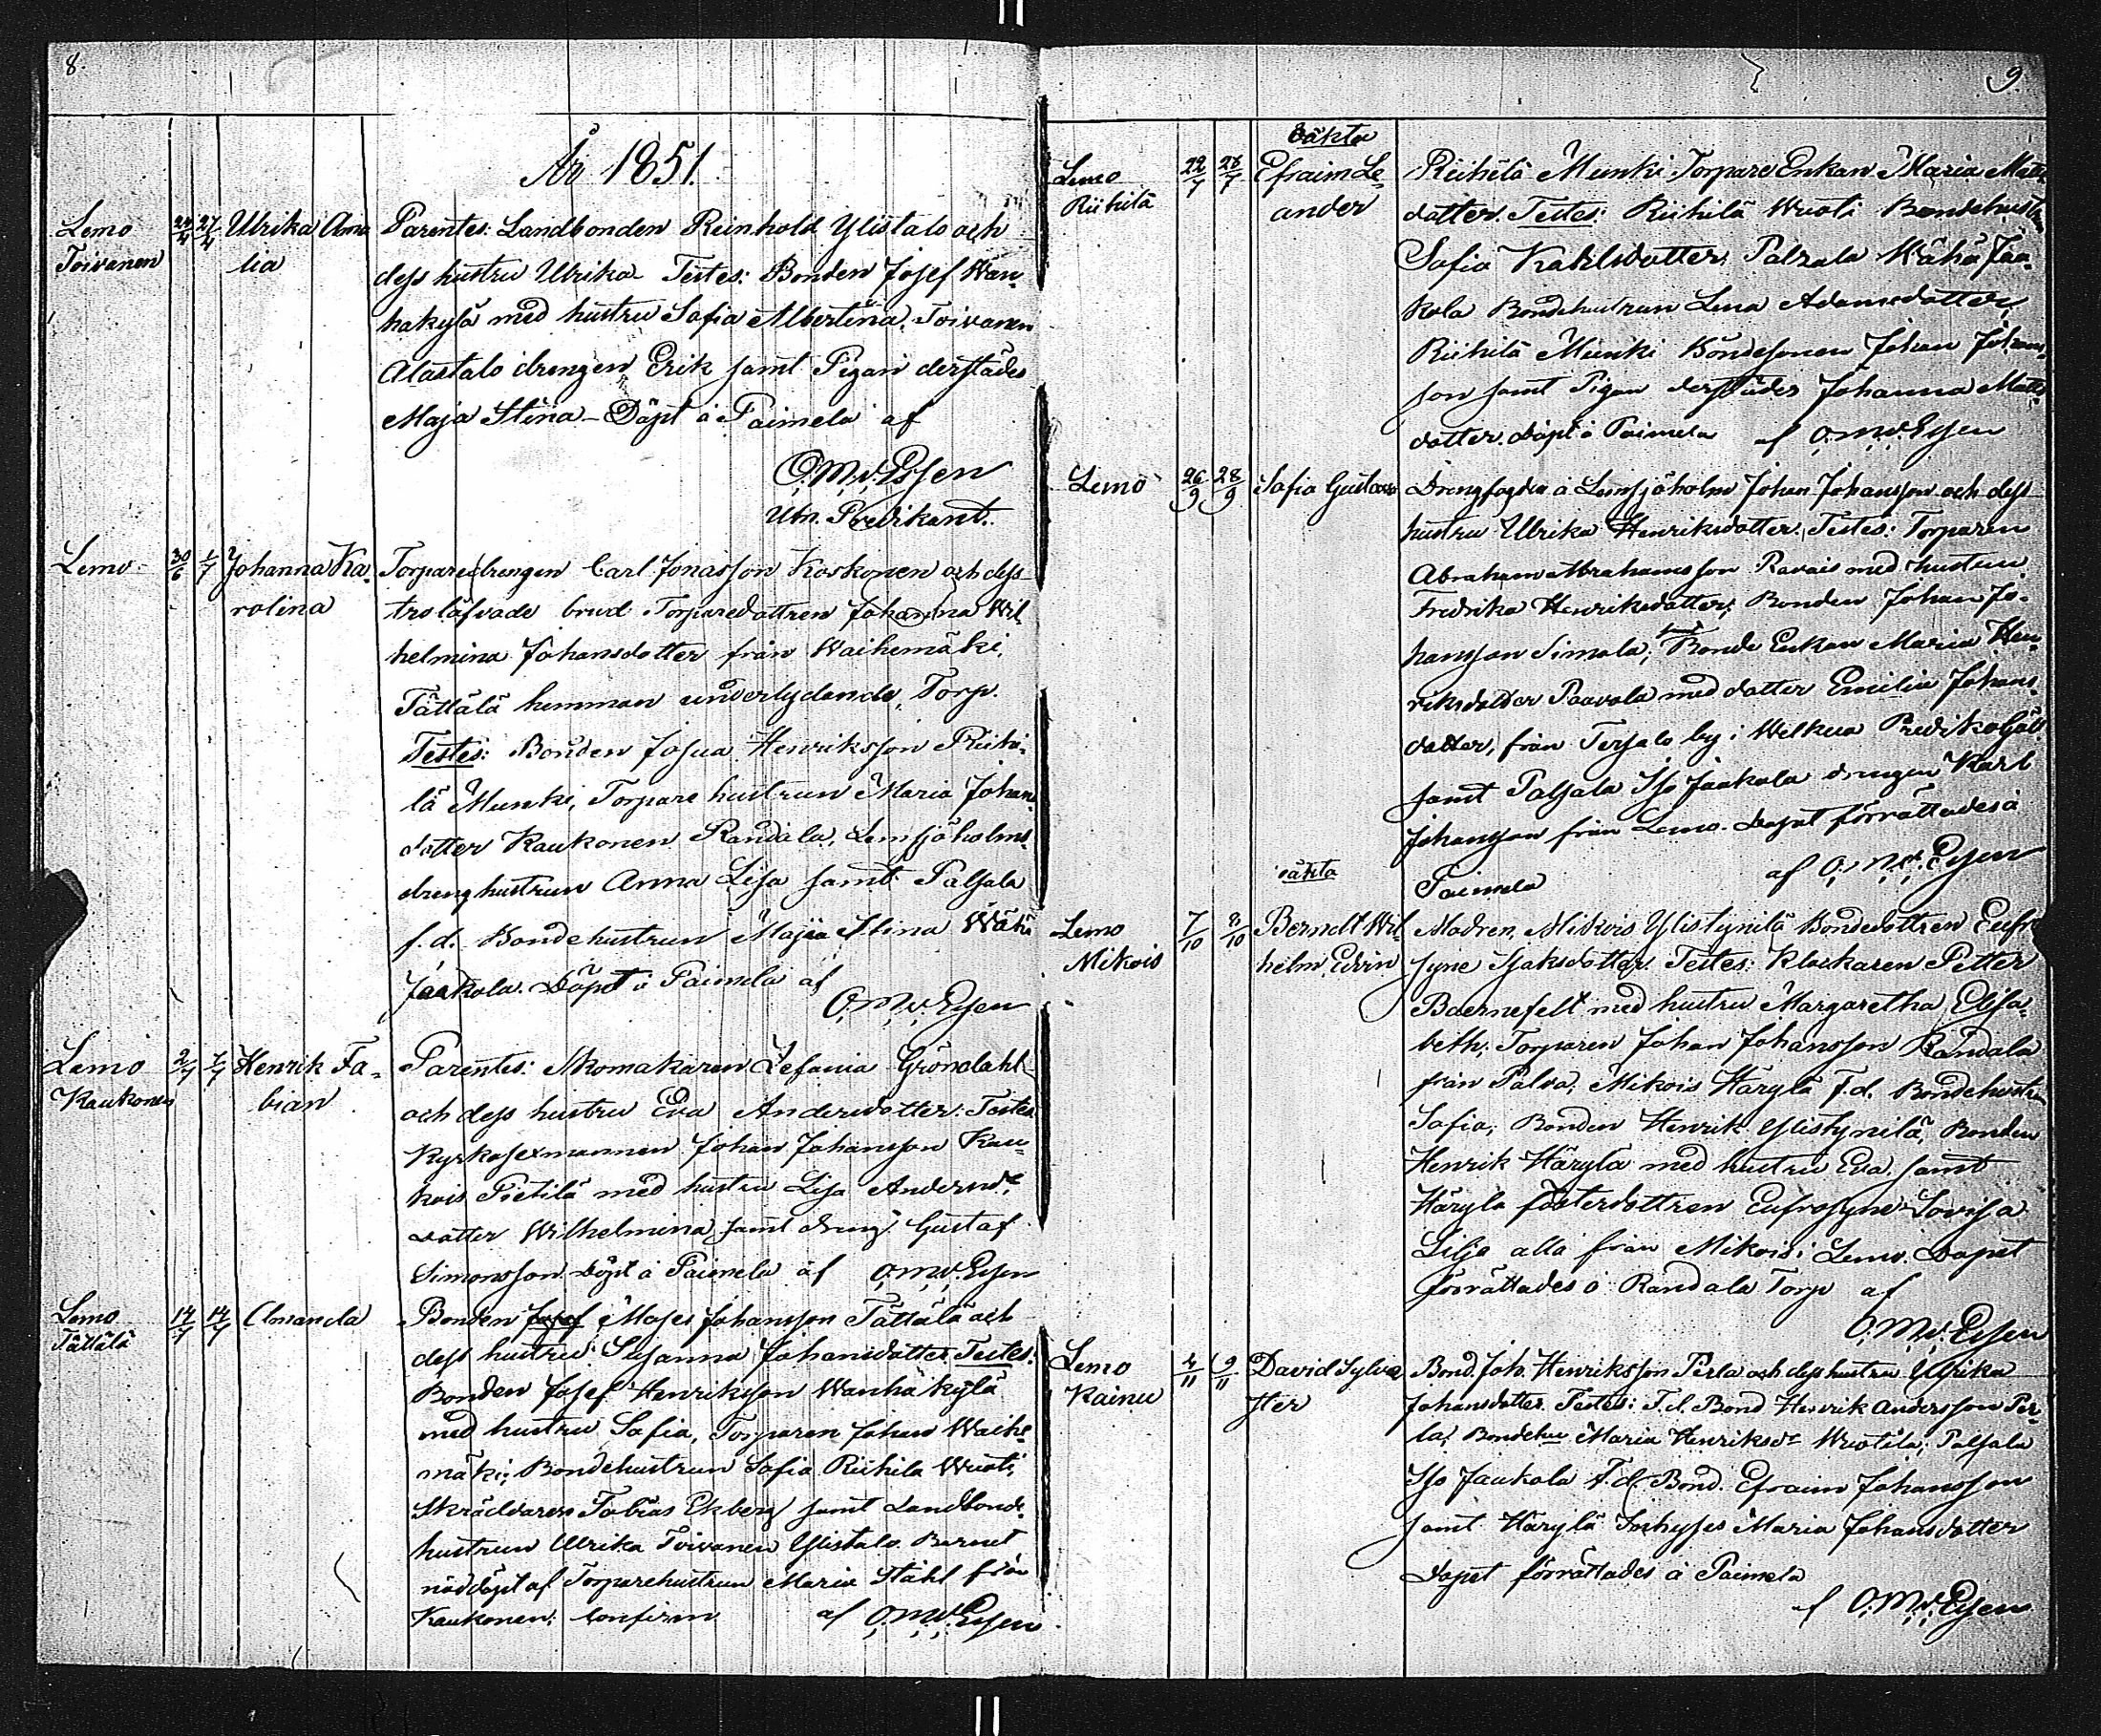 8.
År 1851.
Lemo Toivanen 24/4 27/4 Ulrika Ama
lia
Parentes: Landbonden Reinhold Ylistalo och
dess hustru Ulrika Testes: Bonden Josef Wan-
hakylä med hustru Sofia Albertina. Toivanen
Alastalo drengen Erik samt Pigan derstädes
Maja Stina – Döpt å Paimela af
O.M.v.Essen
Utn. Predikant.
Lemo 30/6 1/7 Johanna Ka-
rolina
Torparedrengen Carl Jonasson Koskonen och dess
trolåfvade brud Torparedottren Johanna Wil
helmina Johansdotter från Waihemäki,
Tättälä hemman underlydande, Torp.
Testes: Bonden Josua Henriksson Riihi-
lä Munki, Torpare hustrun Maria Johans
dotter Kaukonen Randala, Lemsjöholms
drenghustrun Anna Lisa samt Palsala
f.d. Bondehustrun Maja Stina Wähä
Jaakola. Döpet å Paimela af
O.M.v.Essen
Lemo
Kaukonen 2/7 7/7 Henrik Fa-
bian
Parentes: Skomakaren Zefania Gröndahl
och dess hustru Eva Andersdotter. Testes
Kyrkosexmannen Johan Johansson Kau-
kois Pietilä med hustru Lisa Andersd:r
dotter Wilhelmina, samt dreng Gustaf
Simonsson Döpt å Paimela af O.M.v.Essen
Lemo
Tättälä 14/7 14/7 Amanda
Bonden Josef Moses Johansson Tättälä och
dess hustru Susanna Johansdotter Testes:
Bonden Josef Henriksson Wanhakylä
med hustru Sofia, Torparen Johan Waihe-
mäki; Bondehustrun Sofia Riihilä Wuoti,
Skräddaren Tobias Ekberg samt Landbonde-
hustrun Ulrika Toivanen Ylistalo. Barnet
nöddöpt af Torparehustrun Maria Ståhl från
Kaukonen; confirm af O.M.v.Essen
9.
oäkta
Lemo
Riihilä 22/7 28/7 Efraim Le-
ander
Riihilä Munki Torpare Enkan Maria Matts
dotter. Testes: Riihilä Wuoti Bondehustru
Sofia Kahlsdotter, Palsala Wähä Jaa-
kola Bondehustrun Lena Adamsdotter,
Riihilä Munki Bondesonen Johan Johans-
son samt Pigan derstädes Johanna Matts-
dotter. Döpt å Paimela af O.M.v.Essen
Lemo 26/9 28/9 Sofia Gustava
Drengfogden å Lemsjöholm Johan Johansson och dess
hustru Ulrika Henriksdotter. Testes: Torparen
Abraham Abrahamsson Ravais med hustrun
Fredrika Henriksdotter; Bonden Johan Jo-
hansson Simola; Bonde Enkan Maria Hen-
riksdotter Paavola med dotter Emilia Johans-
dotter, från Tersalo by i Welkua Predikogäll
samt Palsala Iso Jaakola drengen Karl
Johansson från Lemo. Dopet förrättades å
Paimela af O.M.v.Essen
oäkta
Lemo
Mikois 7/10 8/10 Berndt Wil-
helm Edvin
Modren, Mikois Ylistynilä Bondedottren Eufro
syne Isaksdotter. Testes: Klockaren Petter
Baernefelt med hustru Margaretha Elisa-
beth; Torparen Johan Johansson Randala
från Palva; Mikois Häryla F.d. Bondehustru
Sofia, Bonden Henrik Ylistynilä, Bonden
Henrik Häryla med hustru Eva samt
Häryla fosterdottren Eufrosyne Lovisa
Lilja alla från Mikois i Lemo. Dopet
förrättades å Randala Torp af
O.M.v.Essen
Lemo
Kainu 4/11 9/11 David Sylve
ster
Bond. Joh. Henriksson Perla och dess hustru Ulrika
Johansdotter Testes: F.d. Bond Henrik Andersson Per-
la, Bondehu Maria Henriksd:r Wuotila; Palsala
Iso Jaakola F.d. Bond. Efraim Johansson
samt Härylä Inhyses Maria Johansdotter
Dopet förrättades å Paimela
af O.M.v.Essen